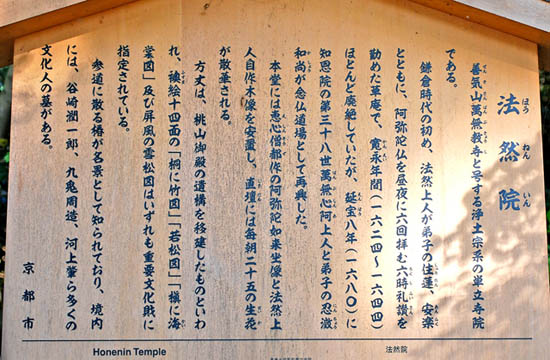 法然院
善気山萬無教寺と号する浄土宗系の単立寺院
である。
鎌倉時代の初め、法然上人が弟子の住蓮、安楽
とともに、阿弥陀仏を昼夜に六回拝む六時礼讃を
勤めた草庵で、寛永年間(一六二四~一六四四)
ほとんど廃絶していたが、延宝八年(一六八〇)に
知恩院の第三十八世萬無心阿上人と弟子の忍澂
和尚が念仏道場として再興した。
本堂には恵心僧都作の阿弥陀如来坐像と法然上
人自作木像を安置し、直壇には毎朝二十五の生花
が散華される。
方丈は、桃山御殿の遺構を移建したものといわ
れ、襖絵十四面の「桐に竹図」「若松図」「槇に海
棠図」及び屏風の雪松図はいずれも重要文化財に
指定されている。
参道に散る椿が名景として知られており、境内
には、谷崎潤一郎、九鬼周造、河上肇ら多くの
文化人の墓がある。
京都市
Honenin Temple
法然院